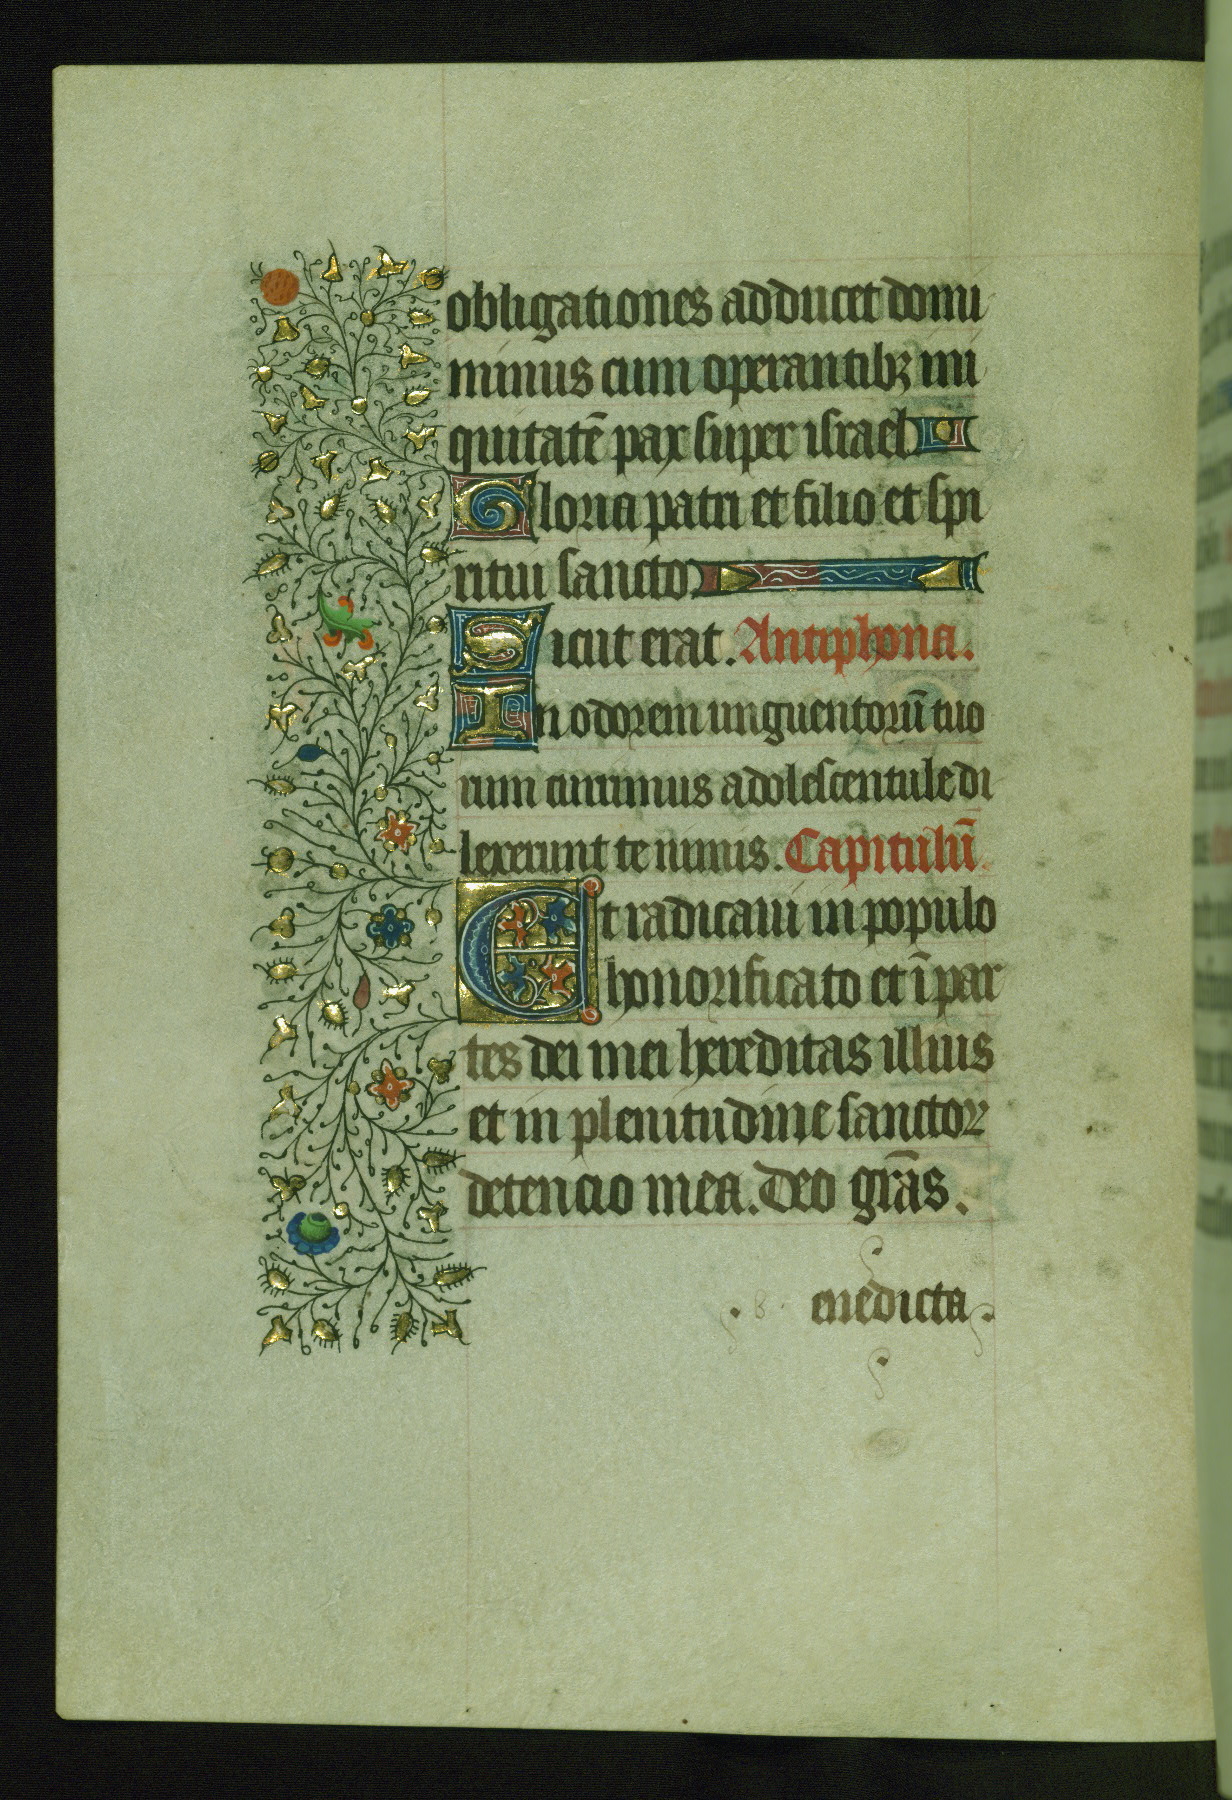 obligationes adducet domi
minus cum operantibꝫ ini
quitatē pax super israel
Gloria patri et filio et spi
ritui sancto
Sicut erat. Antiphona.
In odorem unguentorū tuo
rum currimus adolescentule di
lexerunt te nimis. Capitulū
Et radicaui in populo
honorificato et ī par
tes dei mei hereditas illius
et in plenitudine sanctor
detencio mea. Deo grās.
enedicta